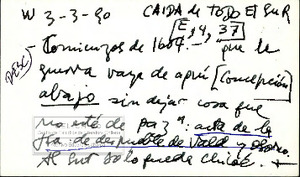 W 3-3-90 CAIDA de TODO El SUR
E, 4, 37
Comienzos de 1604.- que la
guerra vaya de aquí [Concepción]
abajo sin dejar cosa que
no esté de paz":
de despueble de Vald y Osorno.
Al Sur solo queda Chiloé.